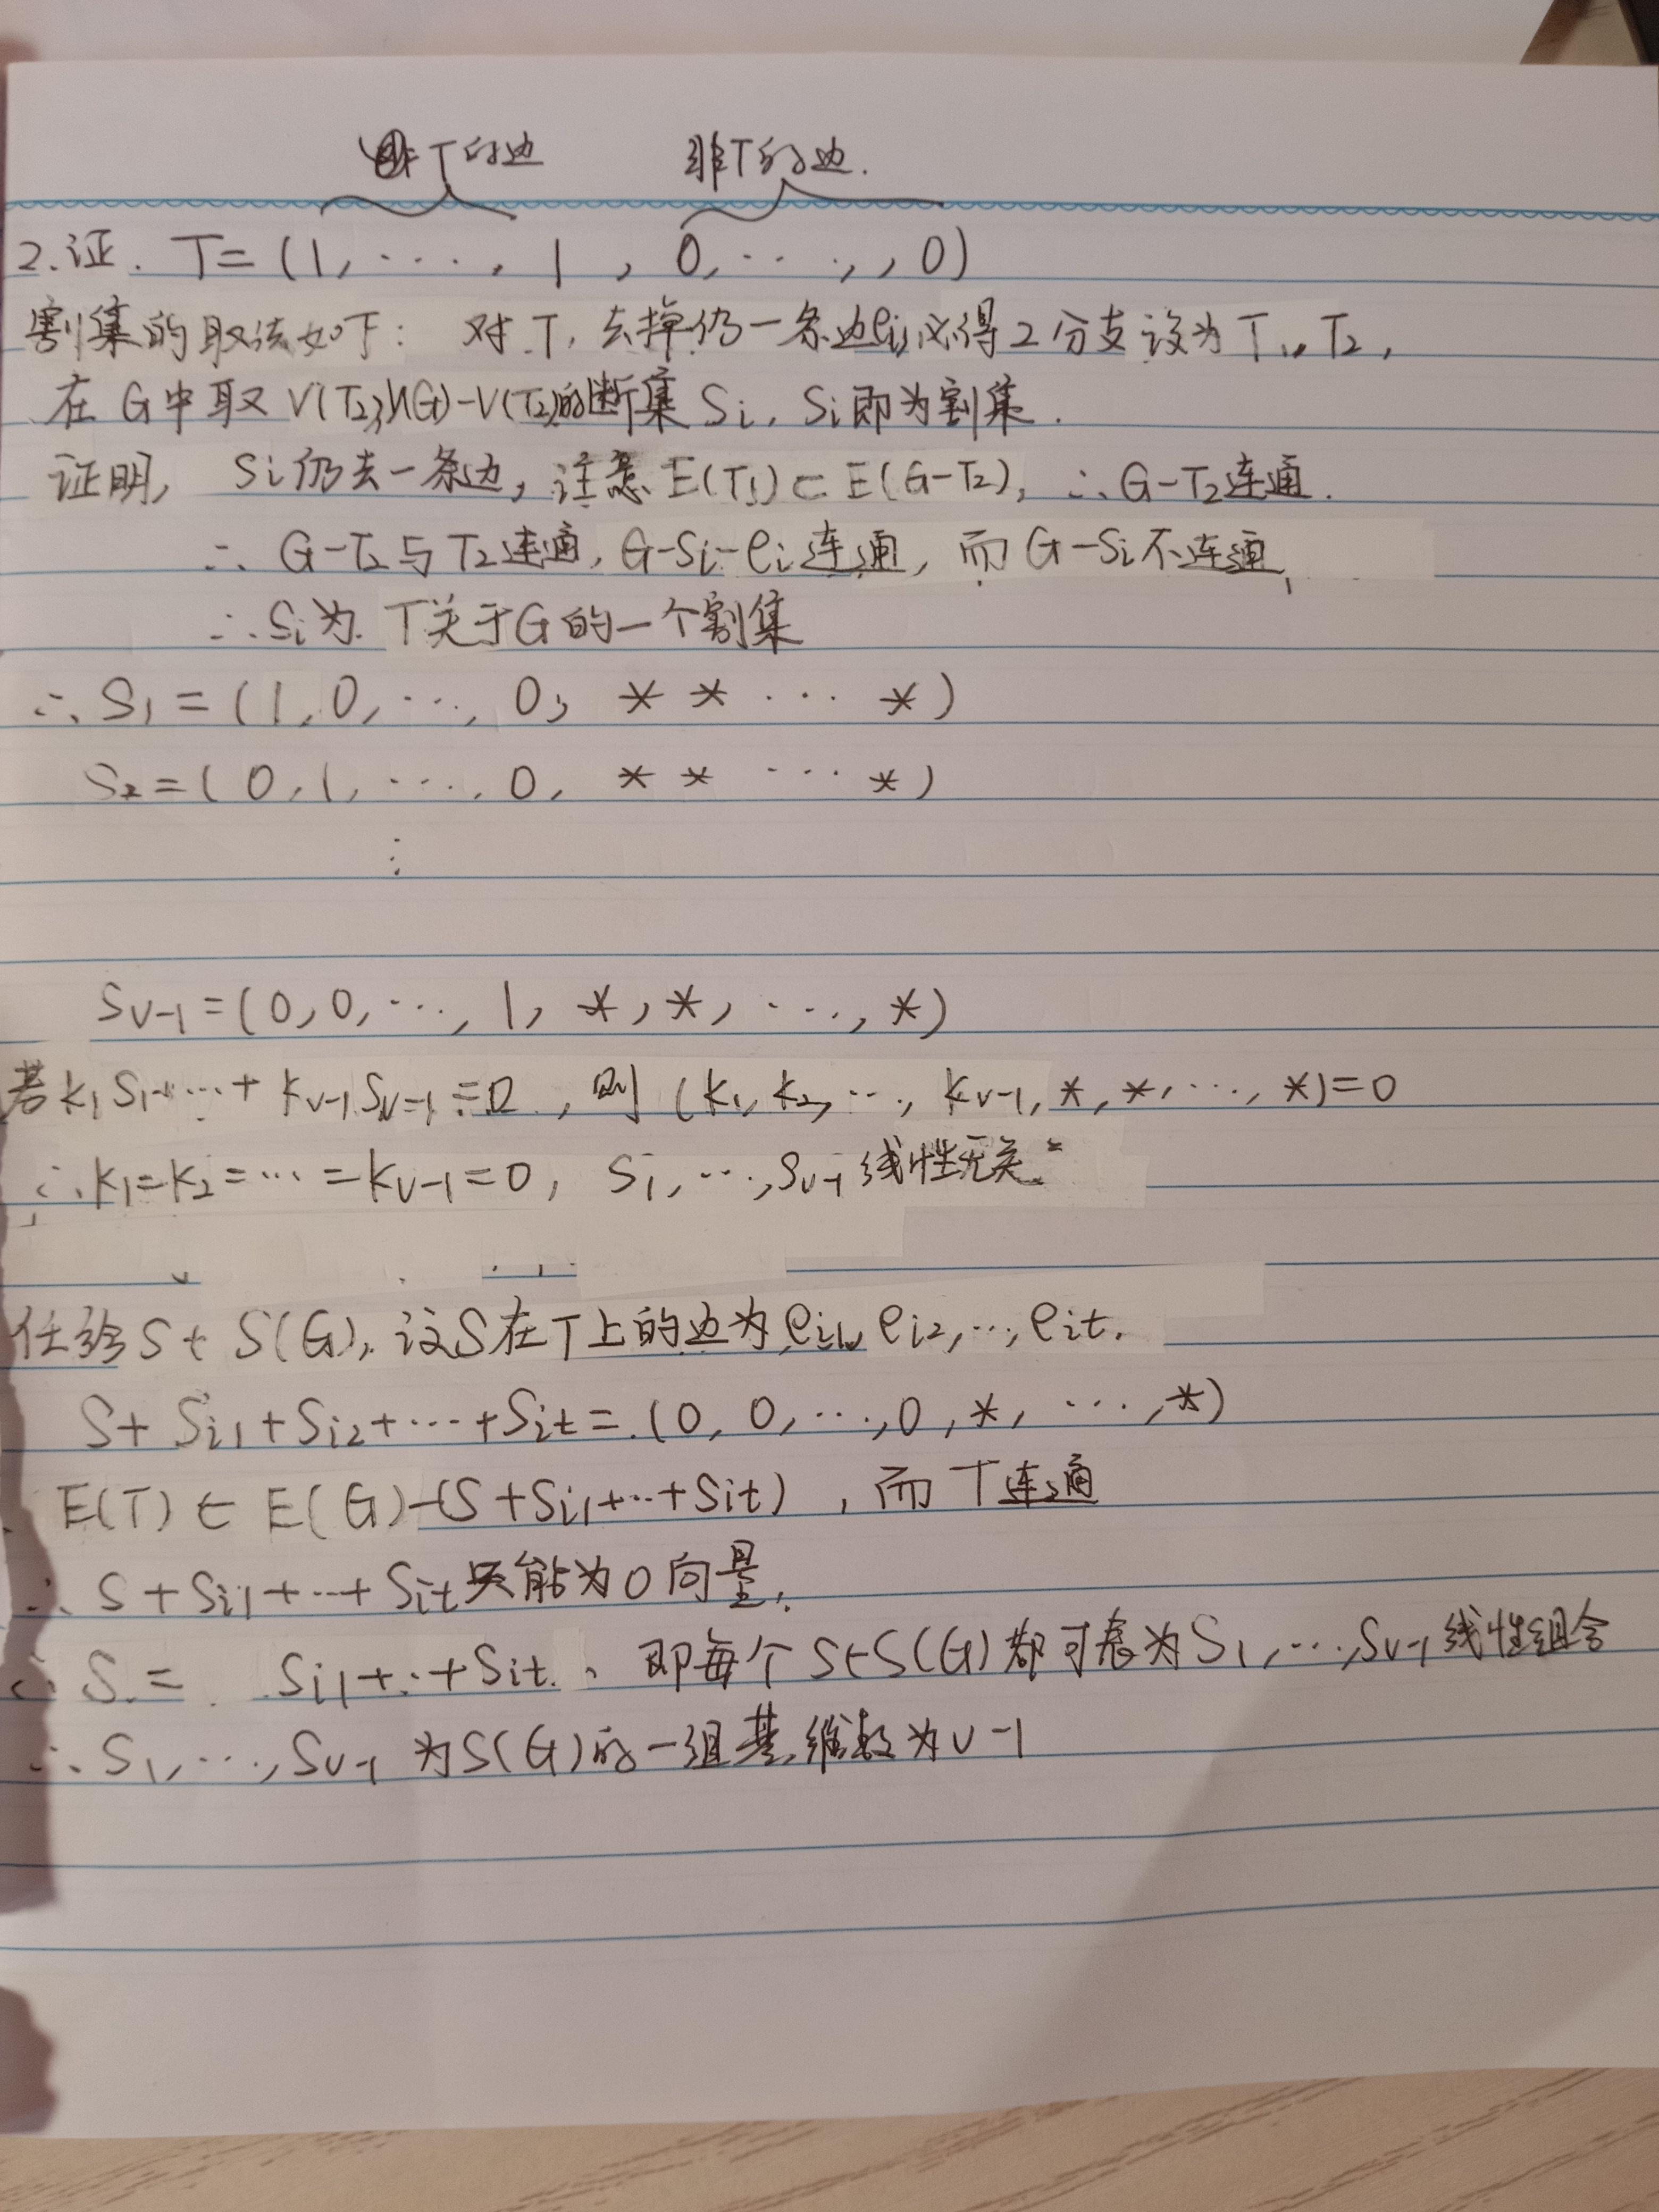 T的边 非T的边.
2.证. T=(1,····, 1 , 0,····,,0)
割集的取法如下: 对T,去掉仍一条边ei,必得2分支设为T₁,T₂,
在G中取V(T₂),V(G)-V(T₂)的断集Si,Si即为割集.
证明, Si仍去一条边,注意E(T₁)⊂E(G-T₂),∴G-T₂连通.
∴G-T₂与T₂连通,G-Si-ei连通,而G-Si不连通,
∴Si为T关于G的一个割集
∴S₁=(1,0,···,0, * * ··· *)
S₂=(0,1,····,0, * * ··· *)
⋮
Sv-1=(0,0,···,1,*,*,···,*)
若k₁S₁+···+kv-1Sv-1=0,则(k₁,k₂,···,kv-1,*,*,···,*)=0
∴k₁=k₂=···=kv-1=0, S₁,···,Sv-1线性无关.
任给S∈S(G),设S在T上的边为ei1,ei2,···,eit.
S+Si1+Si2+···+Sit=(0,0,···,0,*,···,*)
E(T)∈E(G)-(S+Si1+···+Sit),而T连通
∴S+Si1+···+Sit只能为0向量.
∴S= Si1+···+Sit. 即每个S∈S(G)都可表为S₁,···,Sv-1线性组合
∴S₁,···,Sv-1为S(G)的一组基,维数为v-1